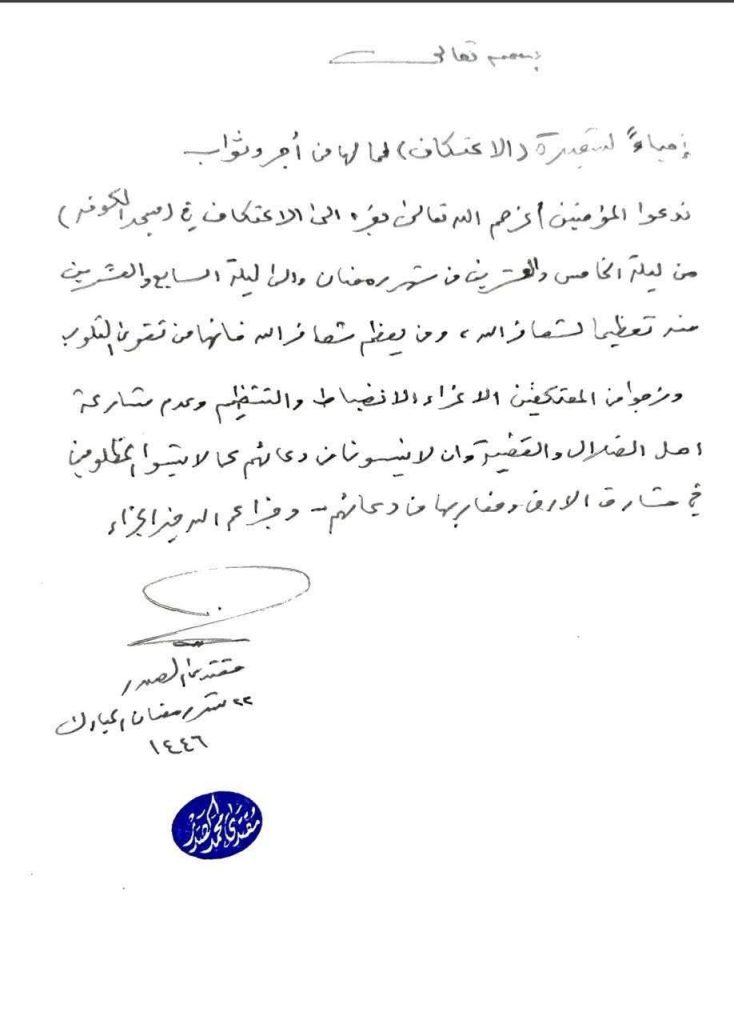 بسمه تعالى
إحياءً لشعيرة (الاعتكاف) لما لها من أجر وثواب
ندعوا المؤمنين أعزهم الله تعالى بعزه الى الاعتكاف في (مسجد الكوفه)
من ليلة الخامس والعشرين من شهر رمضان والى ليلة السابع والعشرين
منه تعظيما لشعائر الله، ومن يعظم شعائر الله فانها من تقوى القلوب
ونرجوا من المعتكفين الاعزاء الانضباط والتنظيم وعدم
اهل الضلال والقضية وان لا ينسونا من دعائهم كما لا ينسوا المظلومين
في مشارق الارض ومغاربها من دعائهم - وجزاهم الله خير الجزاء
مقتدى الصدر
٢٢ شهر رمضان المبارك
١٤٤٦
مقتدى محمد الصدر